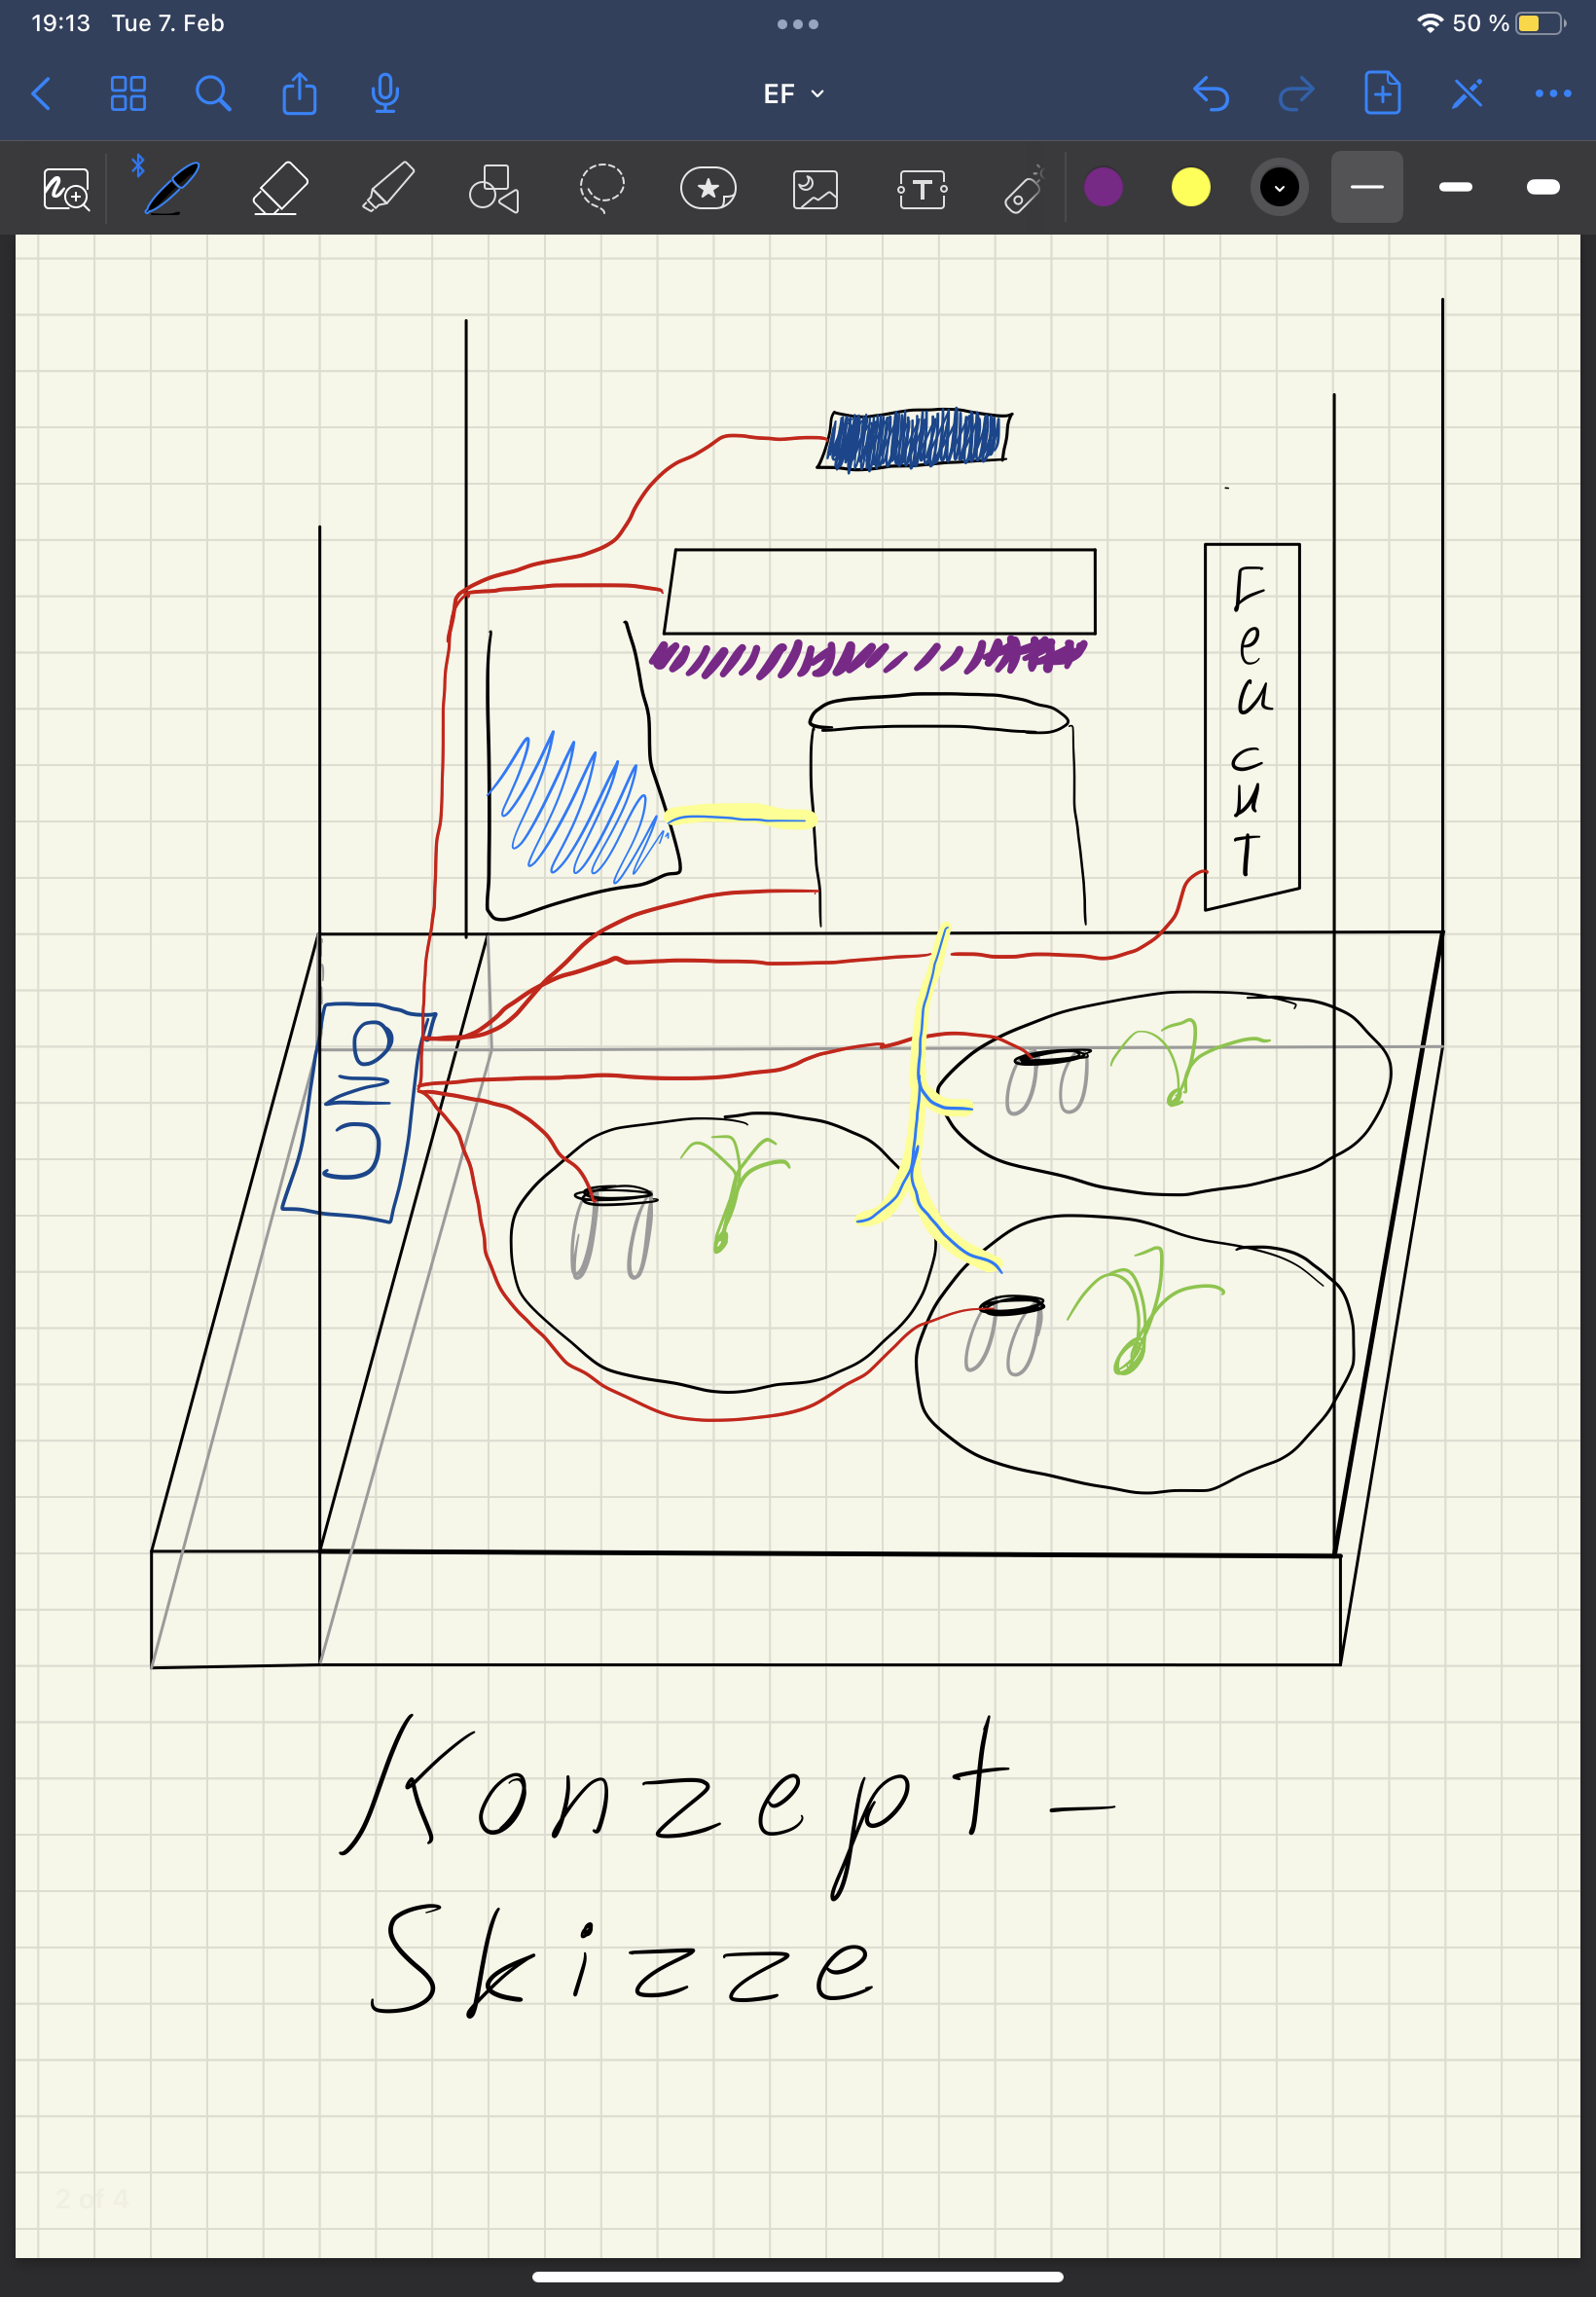 19:13 Tue 7. Feb
50 %
EF
T
Feucht
UNO
Konzept-
Skizze
2 of 4